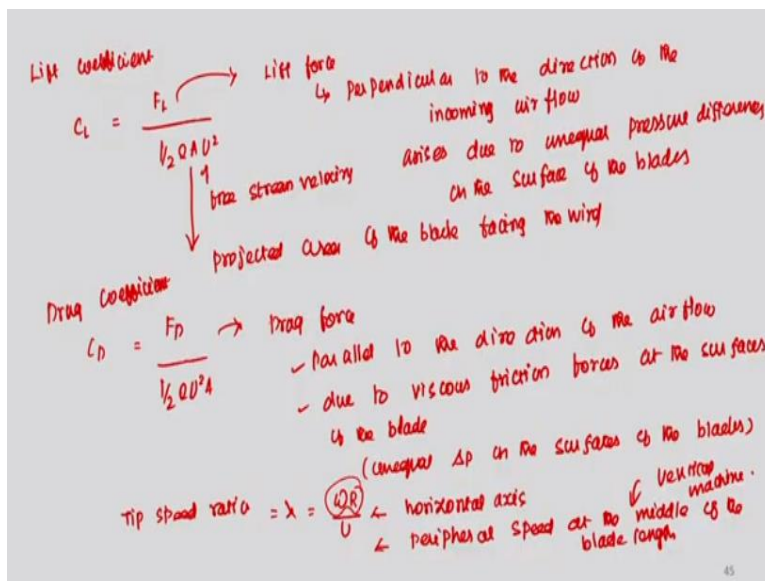 Lift coefficient
C_L = F_L / (1/2 ρ A U²) → Lift force
↳ perpendicular to the direction of the
incoming air flow
arises due to unequal pressure differences
on the surface of the blades
free stream velocity
projected area of the blade facing the wind
Drag coefficient
C_D = F_D / (1/2 ρ U² A) → Drag force
✓ parallel to the direction of the air flow
✓ due to viscous friction forces at the surfaces
of the blade
(unequal Δp on the surfaces of the blades)
Tip speed ratio = λ = ωR / U ← horizontal axis
vertical machine.
← peripheral speed at the middle of the
blade length
45